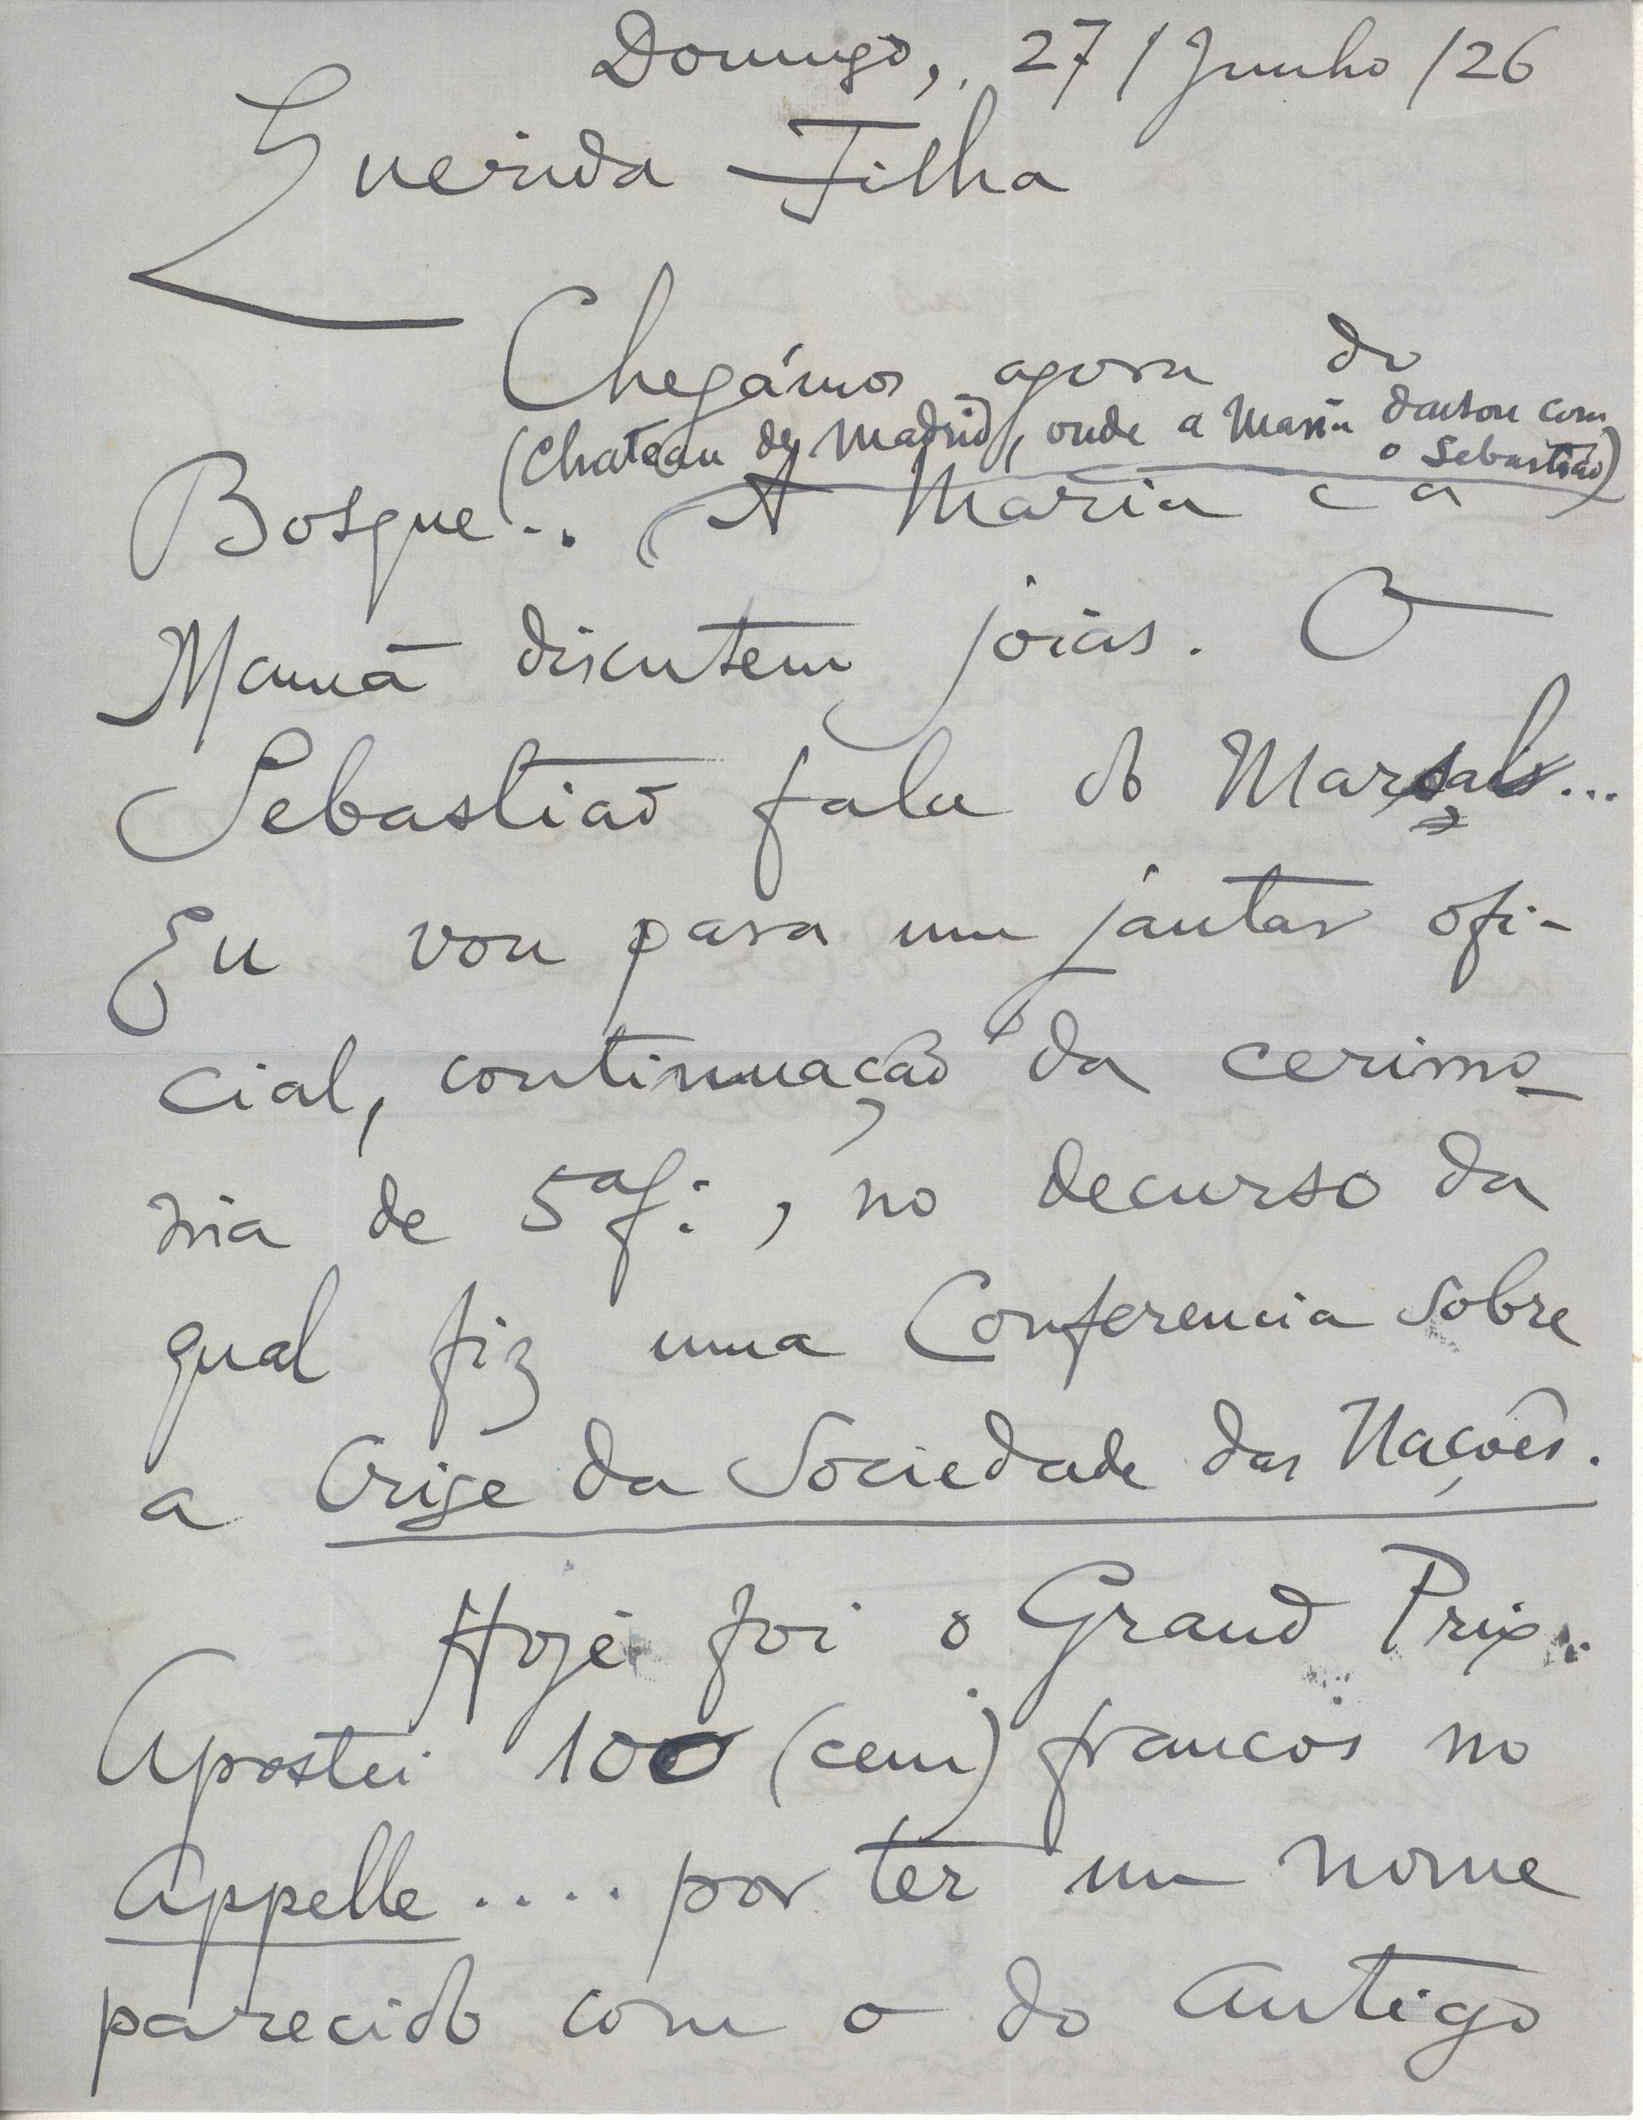 Domingo, 27/Junho/26
Querida Filha
Chegámos agora do
(Chateau de Madrid, onde a Maria dansou com
o Sebastião)
Bosque... A Maria e a
Mamã discutem joias. O
Sebastião fala do
Eu vou para um jantar ofi-
cial, continuação da cerimo-
nia de 5ªf:, no decurso da
qual fiz uma Conferencia sobre
a Crise da Sociedade das Nações.
Hoje foi o Grand Prix..
Apostei 100 (cem) francos no
Appelle.... por ter um nome
parecido com o do antigo